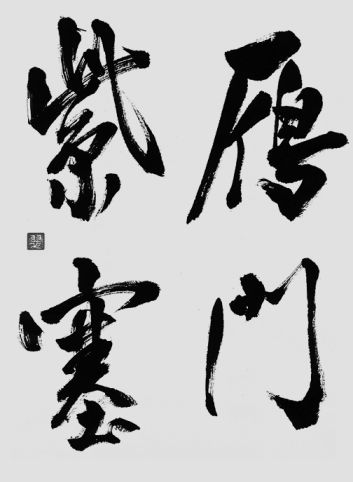 雁門
紫塞